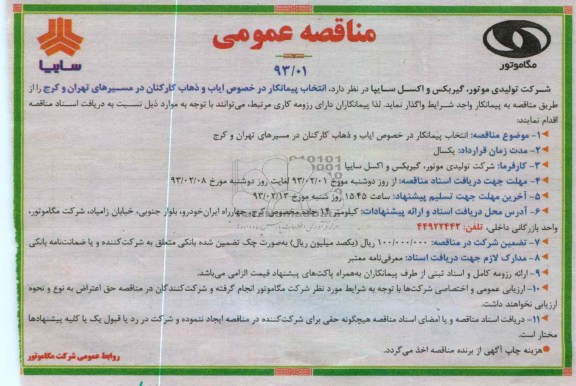 مناقصه عمومی
۹۳/۰۱
سایپا
مگاموتور
شرکت تولیدی موتور، گیربکس و اکسل سایپا در نظر دارد، انتخاب پیمانکار در خصوص ایاب و ذهاب کارکنان در مسیرهای تهران و کرج را از
طریق مناقصه به پیمانکار واجد شرایط واگذار نماید. لذا پیمانکاران دارای رزومه کاری مرتبط، می‌توانند با توجه به موارد ذیل نسبت به دریافت اسناد مناقصه
اقدام نمایند:
۱- موضوع مناقصه: انتخاب پیمانکار در خصوص ایاب و ذهاب کارکنان در مسیرهای تهران و کرج
۲- مدت زمان قرارداد: یکسال
۳- کارفرما: شرکت تولیدی موتور، گیربکس و اکسل سایپا
۴- مهلت جهت دریافت اسناد مناقصه: از روز دوشنبه مورخ ۹۳/۰۲/۰۱ لغایت روز دوشنبه مورخ ۹۳/۰۲/۰۸
۵- آخرین مهلت جهت تسلیم پیشنهاد: ساعت ۱۵:۴۵ روز شنبه مورخ ۹۳/۰۲/۱۳
۶- آدرس محل دریافت اسناد و ارائه پیشنهادات: کیلومتر ۱۴ جاده مخصوص کرج، چهارراه ایران‌خودرو، بلوار جنوبی، خیابان زامیاد، شرکت مگاموتور،
واحد بازرگانی داخلی، تلفن: ۴۴۹۲۲۴۴۲
۷- تضمین شرکت در مناقصه: ۱۰۰/۰۰۰/۰۰۰ ریال (یکصد میلیون ریال) به‌صورت چک تضمین شده بانکی متعلق به شرکت‌کننده و یا ضمانت‌نامه بانکی
۸- مدارک لازم جهت دریافت اسناد: معرفی‌نامه معتبر
۹- ارائه رزومه کامل و اسناد ثبتی از طرف پیمانکاران به‌همراه پاکت‌های پیشنهاد قیمت الزامی می‌باشد.
۱۰- ارزیابی عمومی و اختصاصی شرکت‌ها با توجه به شرایط مورد نظر شرکت مگاموتور انجام گرفته و شرکت‌کنندگان در مناقصه حق اعتراض به نوع و نحوه
ارزیابی نخواهند داشت.
۱۱- دریافت اسناد مناقصه و یا امضای اسناد مناقصه هیچگونه حقی برای شرکت‌کننده در مناقصه ایجاد ننموده و شرکت در رد یا قبول یک یا کلیه پیشنهادها
مختار است.
هزینه چاپ آگهی از برنده مناقصه اخذ می‌گردد.
روابط عمومی شرکت مگاموتور